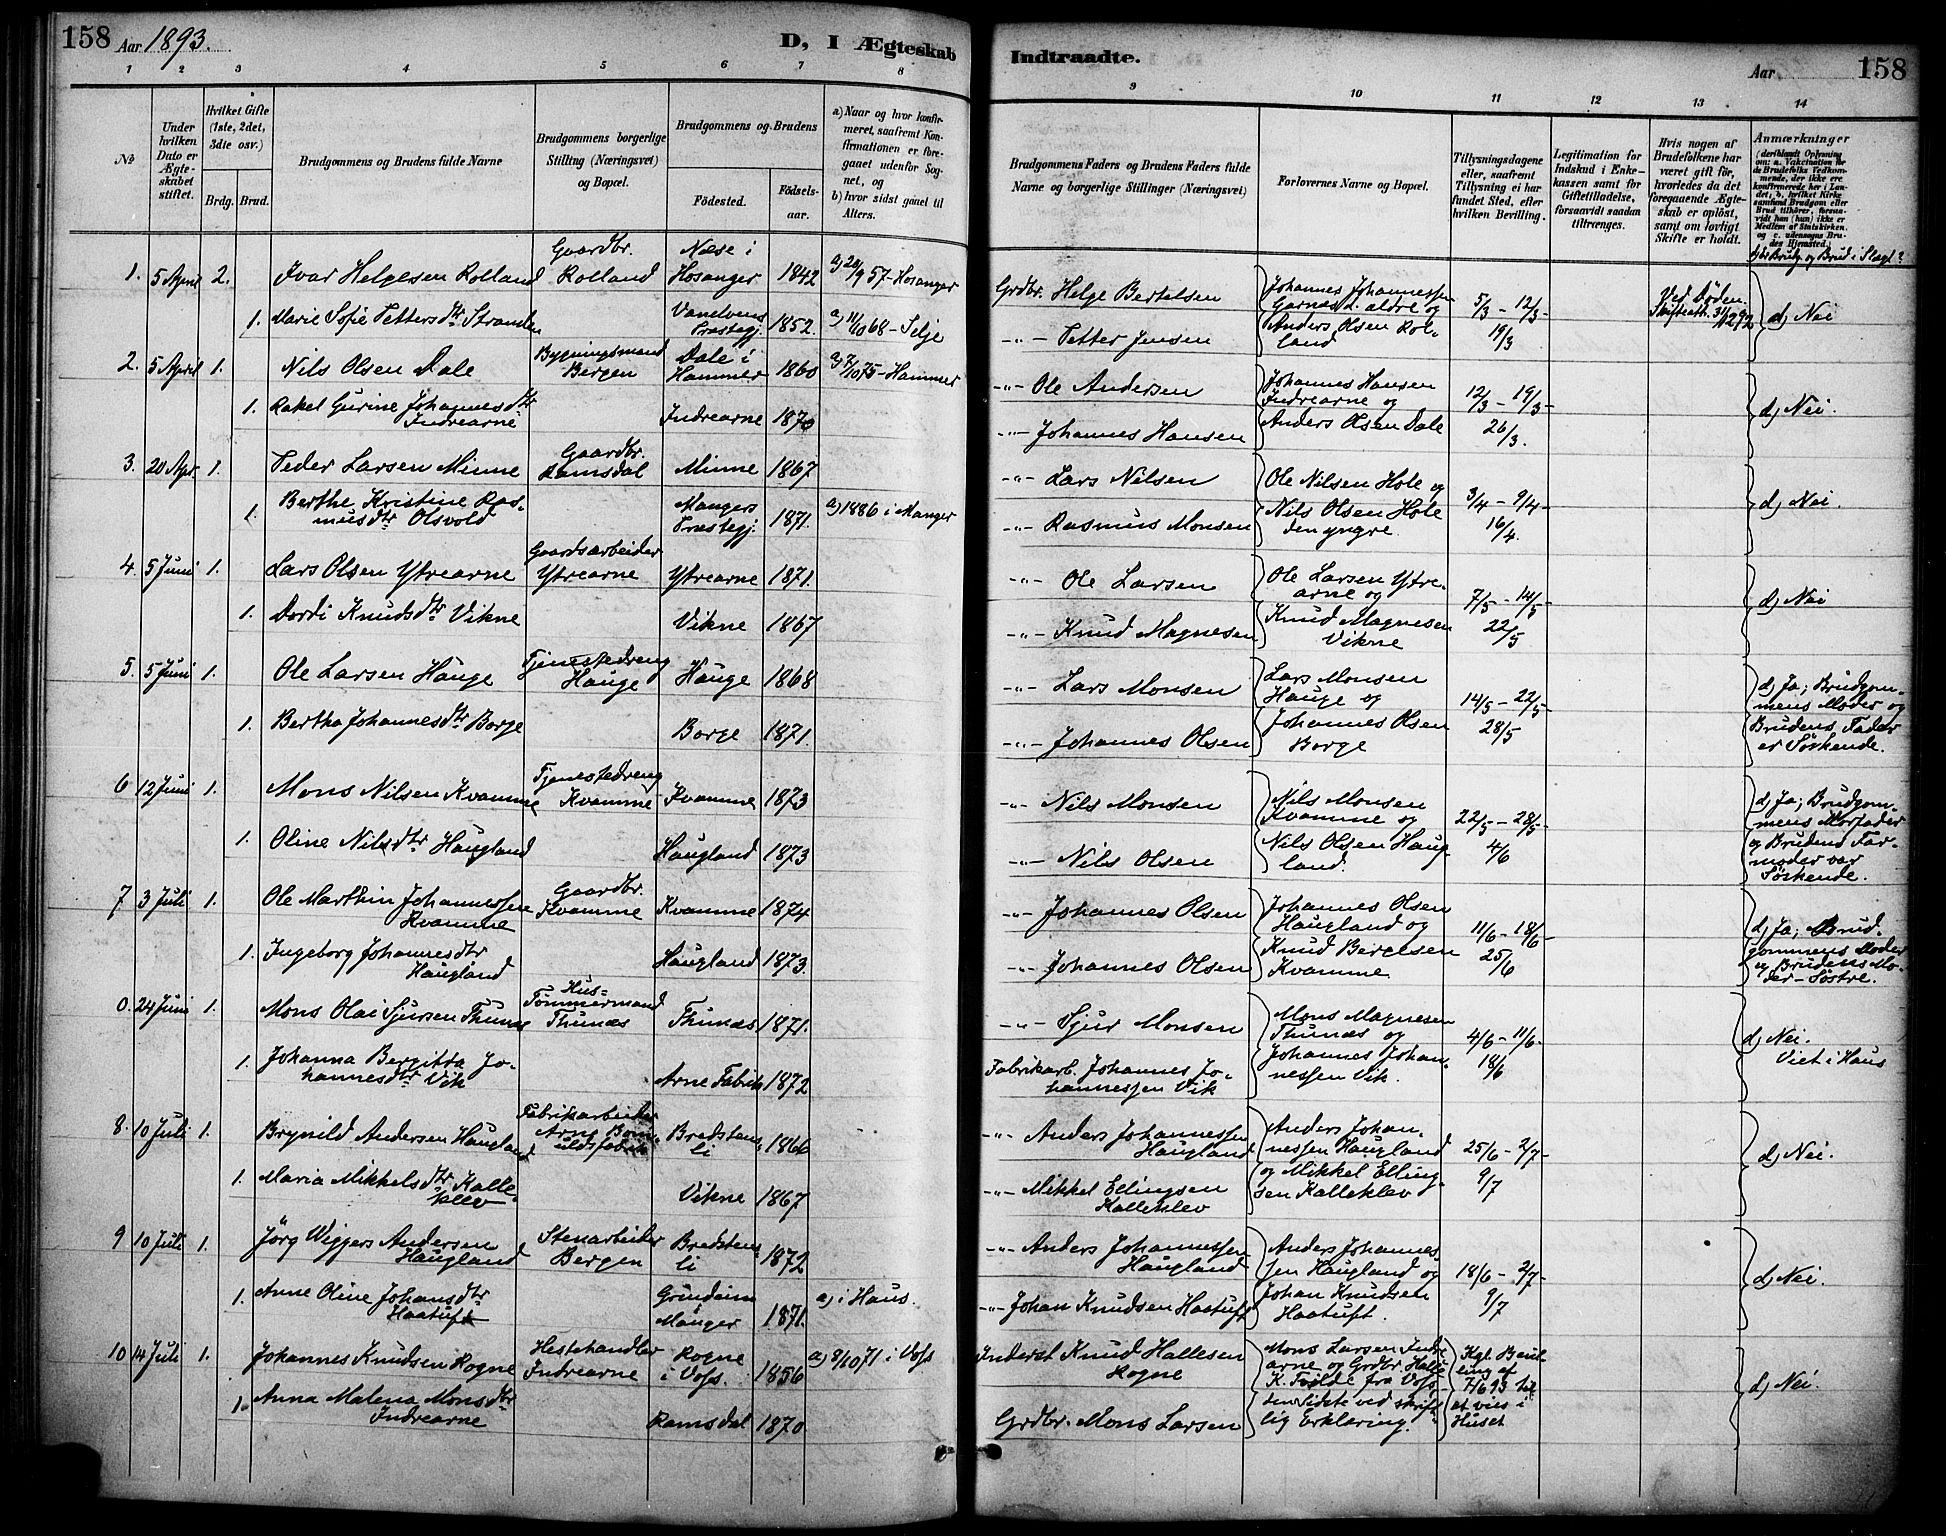 158 Aar 1893. D, I Ægteskab
Indtraadte. Aar 158
1 2 3 4 5 6 7 8
9 10 11 12 13 14
No
Under hvilken Dato er Ægteskabet stiftet.
Hvilket Gifte (1ste, 2det, 3die osv.)
Brdg. Brud.
Brudgommens og Brudens fulde Navne
Brudgommens borgerlige Stilling (Næringsvei) og Bopæl.
Brudgommens og Brudens
Födested. Födsels-aar.
a) Naar og hvor konfirmeret, saafremt Konfirmationen er foregaaet udenfor Sognet, og
b) hvor sidst gaaet til Alters.
Brudgommens Faders og Brudens Faders fulde Navne og borgerlige Stillinger (Næringsvei)
Forlovernes Navne og Bopæl.
Tillysningsdagene eller, saafremt Tillysning ei har fundet Sted, efter hvilken Bevilling.
Legitimation for Indskud i Enkekassen samt for Giftetilladelse, forsaavidt saadan tiltrænges.
Hvis nogen af Brudefolkene har været gift för, hvorledes da det foregaaende Ægteskab er oplöst, samt om lovligt Skifte er holdt.
Anmærkninger (deriblandt Oplysning om: a. Vakcination for de Brudefolks Vedkommende, der ikke ere konfirmerede her i Landet, b. hvilket Kirkesamfund Brudgom eller Brud tilhörer, forsaavidt han (hun) ikke er Medlem af Statskirken, og c. udensogns Brudes Hjemsted.)
d) er Brudg. og Brud i Slægt?
1. 5 April 2. Ivar Helgesen Rolland Gaardbr. Rolland Næse i Hosanger 1842 a) 20/9 57 - Hosanger
Grdbr. Helge Bertelsen Johannes Johannessen Garnæs d. ældre og 5/3 - 12/3 - Ved Döden. d) Nei
1. Marie Sofie Pettersdtr Stranden Vanelvens Præstegj. 1852. a) 11/10 68 - Selje
-"- Petter Jensen Anders Olsen Rolland 19/3
2. 5 April 1. Nils Olsen Dale Bygningsmand Bergen Dale i Hammer 1860 a) 7/10 75 - Hammer
-"- Ole Andersen Johannes Hansen Indrearne og 12/3 - 19/3 - d) Nei.
1. Rakel Gurine Johannesdtr Indrearne Indrearne 1870
-"- Johannes Hansen Anders Olsen Dale 26/3.
3. 20 Apr. 1. Peder Larsen Minne Gaardbr. Ramsdal Minne 1867
-"- Lars Nilsen Ole Nilsen Hole og 3/4 - 9/4 - d) Nei.
1. Berthe Kristine Rasmusdtr Olsvold Mangers Præstegj. 1871. a) 1886 i Manger
-"- Rasmus Monsen Nils Olsen Hole den yngre. 16/4.
4. 5 Juni 1. Lars Olsen Ytrearne Gaardsarbeider Ytrearne Ytrearne 1871.
-"- Ole Larsen Ole Larsen Ytrearne og 7/5 - 14/5 - d) Nei
1. Dordi Knudsdtr Vikne Vikne 1867
-"- Knud Magnesen Knud Magnesen Vikne 22/5
5. 5 Juni 1. Ole Larsen Hauge Tjenestedreng Hauge Hauge 1868
-"- Lars Monsen Lars Monsen Hauge og 14/5 - 22/5 - d) Ja; Brudgommens Moder og
1. Bertha Johannesdtr Borge Borge 1871.
-"- Johannes Olsen Johannes Olsen Borge 28/5 Brudens Fader er Söskende.
6 12 Juni 1. Mons Nilsen Kvamme Tjenestedreng Kvamme Kvamme 1873
-"- Nils Monsen Nils Monsen Kvamme og 22/5 - 28/5 - d) Ja; Brudgommens Morfader
1. Oline Nilsdtr Haugland Haugland 1873
-"- Nils Olsen Nils Olsen Haugland. 4/6 og Brudens Farmoder var Söskende.
7 3 Juli 1. Ole Marthin Johannessen Kvamme Gaardbr. Kvamme Kvamme 1874
-"- Johannes Olsen Johannes Olsen Haugland og 11/6 - 18/6 - d) Ja; Brudgommens Moder
1. Ingeborg Johannesdtr Haugland Haugland 1873.
-"- Johannes Olsen Knud Bergesen Kvamme 25/6 og Brudens Moder - Söstre.
0. 24 Juni 1. Mons Olai Sjursen Thunæs Hus-Tömmermand Thunæs Thunæs 1871.
-"- Sjur Monsen Mons Magnesen Thunæs og 4/6 - 11/6 - d) Nei. Viet i Haus
1. Johanna Bergitta Johannesdtr Vik Arne Fabrik 1872
Fabrikarb. Johannes Johannessen Vik Johannes Johannessen Vik. 18/6
8. 10 Juli 1. Brynild Andersen Haugland Fabrikarbeider Arne Bomuldsfabrik Bredstensli 1866
-"- Anders Johannessen Haugland Anders Johannessen Haugland 25/6 - 2/7 - d) Nei.
1. Maria Mikkelsdtr Kalleklev Vikne 1867
-"- Mikkel Ellingsen Kalleklev og Mikkel Ellingsen Kalleklev 9/7
9 10 Juli 1. Jörg Wiggers Andersen Haugland Stenarbeider Bergen Bredstensli 1872
-"- Anders Johannessen Haugland Anders Johannessen Haugland og 18/6 - 2/7 - d) Nei.
1. Anne Oline Johansdtr Haatuft Grindeim Manger 1871. a) i Haus.
-"- Johan Knudsen Haatuft Johan Knudsen Haatuft. 9/7
10 14 Juli 1. Johannes Knudsen Rogne Hestehandler Indrearne Rogne i Vofs. 1856 a) 8/10 71 i Vofs
Inderst Knud Hallesen Rogne Mons Larsen Indrearne og Grdbr. Halle Kgl. Bevilling af d) Nei.
1. Anna Malena Monsdtr Indrearne Ramsdal 1870
Grdbr. Mons Larsen K. fra Vofs, den sidste ved skriftlig Erklæring. 7/6 93 til at vies i Huset